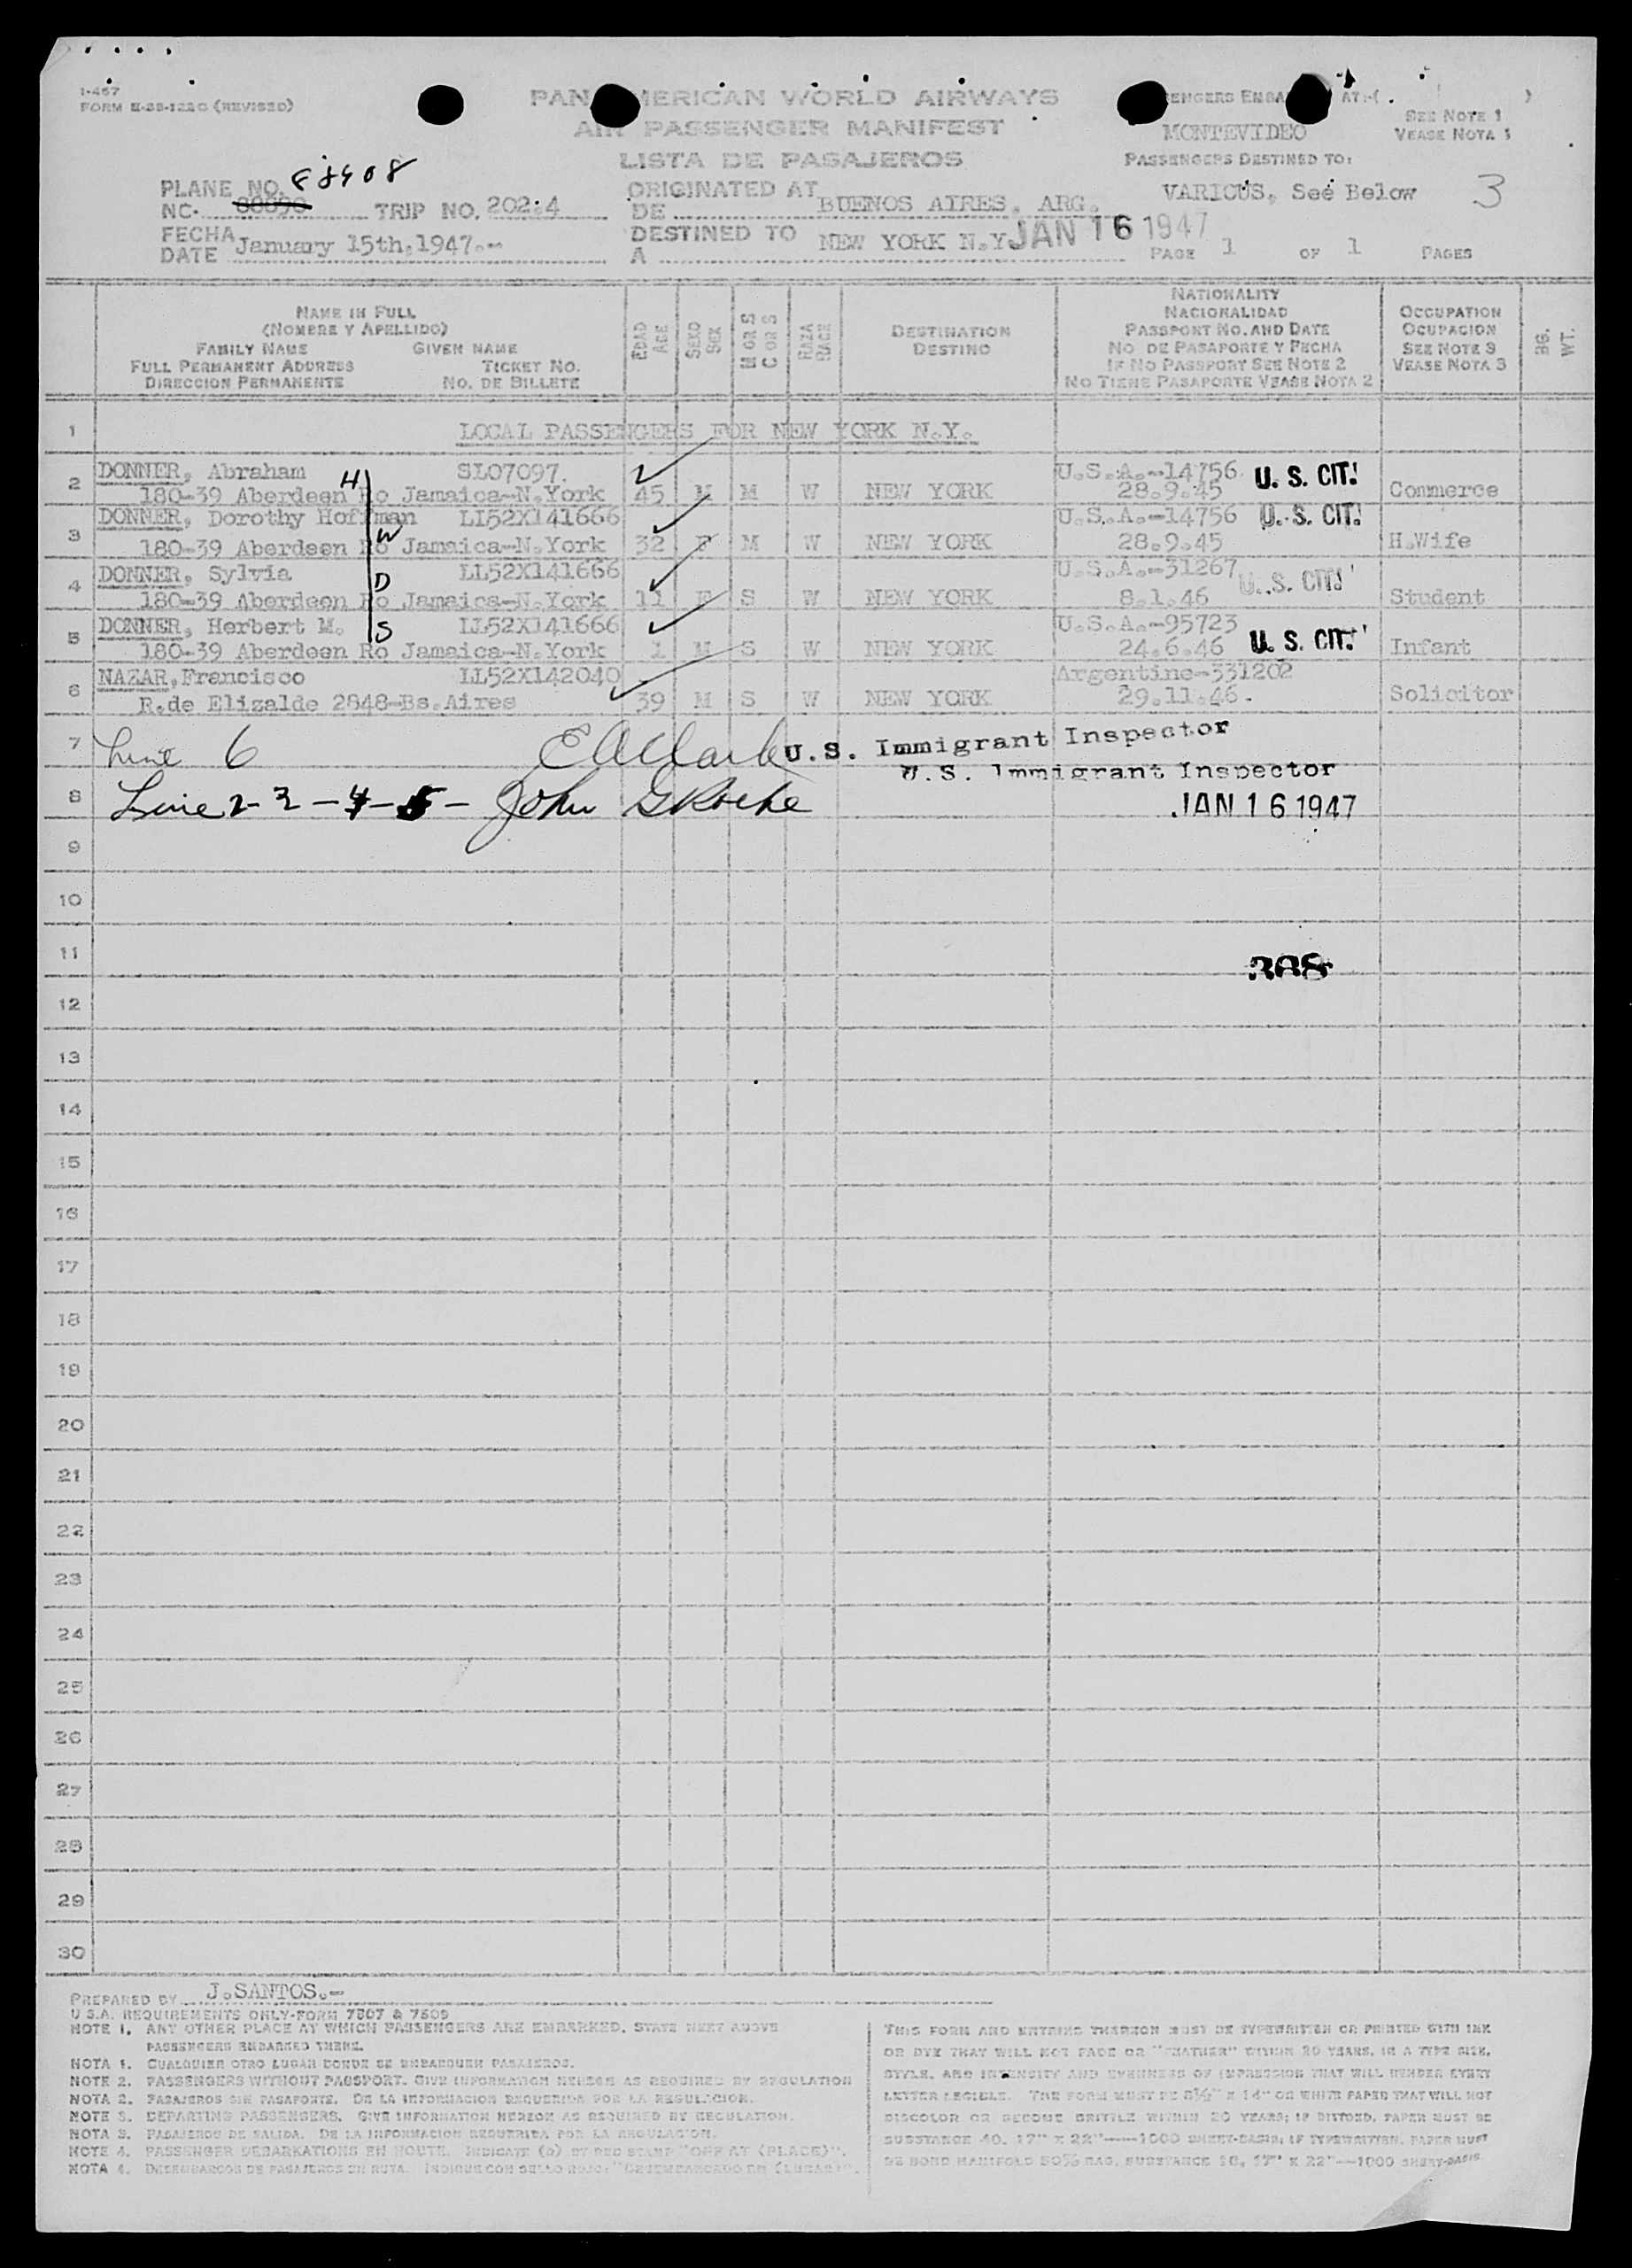 1-467
FORM E-88-122C (REVISED)
PAN AMERICAN WORLD AIRWAYS
AIR PASSENGER MANIFEST
LISTA DE PASAJEROS
PASSENGERS EMBARKED AT:-( )
MONTEVIDEO
SEE NOTE 1
VEASE NOTA 1
PASSENGERS DESTINED TO:
VARIOUS, See Below
3
PLANE NO. 88908
NC- TRIP NO. 202-4
ORIGINATED AT
DE BUENOS AIRES, ARG.
FECHA
DATE January 15th.1947.-
DESTINED TO
A NEW YORK N.Y.
JAN 16 1947
PAGE 1 OF 1 PAGES
NAME IN FULL
(NOMBRE Y APELLIDO)
FAMILY NAME GIVEN NAME
FULL PERMANENT ADDRESS TICKET NO.
DIRECCION PERMANENTE NO. DE BILLETE
EDAD
AGE
SEXO
SEX
M OR S
C OR S
RAZA
RACE
DESTINATION
DESTINO
NATIONALITY
NACIONALIDAD
PASSPORT NO. AND DATE
NO DE PASAPORTE Y FECHA
IF NO PASSPORT SEE NOTE 2
NO TIENE PASAPORTE VEASE NOTA 2
OCCUPATION
OCUPACION
SEE NOTE 3
VEASE NOTA 3
BG.
WT.
1 LOCAL PASSENGERS FOR NEW YORK N.Y.
2 DONNER, Abraham H SLO7097. U.S.A.-14756 U. S. CIT.
180-39 Aberdeen Ro Jamaica-N.York 45 M M W NEW YORK 28.9.45 Commerce
3 DONNER, Dorothy Hoffman LL52X141666 U.S.A.-14756 U. S. CIT.
180-39 Aberdeen Ro Jamaica-N.York W 32 F M W NEW YORK 28.9.45 H.Wife
4 DONNER, Sylvia D LL52X141666 U.S.A.-31267 U. S. CIT.
180-39 Aberdeen Ro Jamaica-N.York 11 F S W NEW YORK 8.1.46 Student
5 DONNER, Herbert M. S LL52X141666 U.S.A.-95723
180-39 Aberdeen Ro Jamaica-N.York 1 M S W NEW YORK 24.6.46 U. S. CIT. Infant
6 NAZAR, Francisco LL52X142040 Argentine-531202
R.de Elizalde 2848-Bs.Aires 39 M S W NEW YORK 29.11.46. Solicitor
7 Line 6 U.S. Immigrant Inspector
U.S. Immigrant Inspector
8 Line 2-3-4-5- John
JAN 16 1947
9
10
11
308
12
13
14
15
16
17
18
19
20
21
22
23
24
25
26
27
28
29
30
PREPARED BY J.SANTOS.-
U S.A. REQUIREMENTS ONLY-FORM 7507 & 7509
NOTE 1. ANY OTHER PLACE AT WHICH PASSENGERS ARE EMBARKED, STATE NEXT ABOVE
PASSENGERS EMBARKED THERE.
NOTA 1. CUALQUIER OTRO LUGAR DONDE SE EMBARQUEN PASAJEROS.
NOTE 2. PASSENGERS WITHOUT PASSPORT. GIVE INFORMATION HEREON AS REQUIRED BY REGULATION
NOTA 2. PASAJEROS SIN PASAPORTE. DE LA INFORMACION REQUERIDA POR LA REGULACION.
NOTE 3. DEPARTING PASSENGERS. GIVE INFORMATION HEREON AS REQUIRED BY REGULATION.
NOTA 3. PASAJEROS DE SALIDA. DE LA INFORMACION REQUERIDA POR LA REGULACION.
NOTE 4. PASSENGER DEBARKATIONS EN ROUTE. INDICATE (D) BY RED STAMP "OFF AT (PLACE)".
NOTA 4. DESEMBARCOS DE PASAJEROS EN RUTA. INDIQUE CON SELLO ROJO: "DESEMBARCADO EN (LUGAR)".
THIS FORM AND ENTRIES THEREON MUST BE TYPEWRITTEN OR PRINTED WITH INK
OR DYE THAT WILL NOT FADE OR "FEATHER" WITHIN 20 YEARS, IN A TYPE SIZE,
STYLE, AND INTENSITY AND EVENNESS OF IMPRESSION THAT WILL RENDER EVERY
LETTER LEGIBLE. THE FORM MUST BE 8½" X 14" OR WHITE PAPER THAT WILL NOT
DISCOLOR OR BECOME BRITTLE WITHIN 20 YEARS; IF DITTOED, PAPER MUST BE
SUBSTANCE 40, 17" X 22"—1000 SHEET-BASIS; IF TYPEWRITTEN, PAPER MUST
BE BOND MANIFOLD 50% RAG, SUBSTANCE 18, 17" X 22"—1000 SHEET-BASIS.